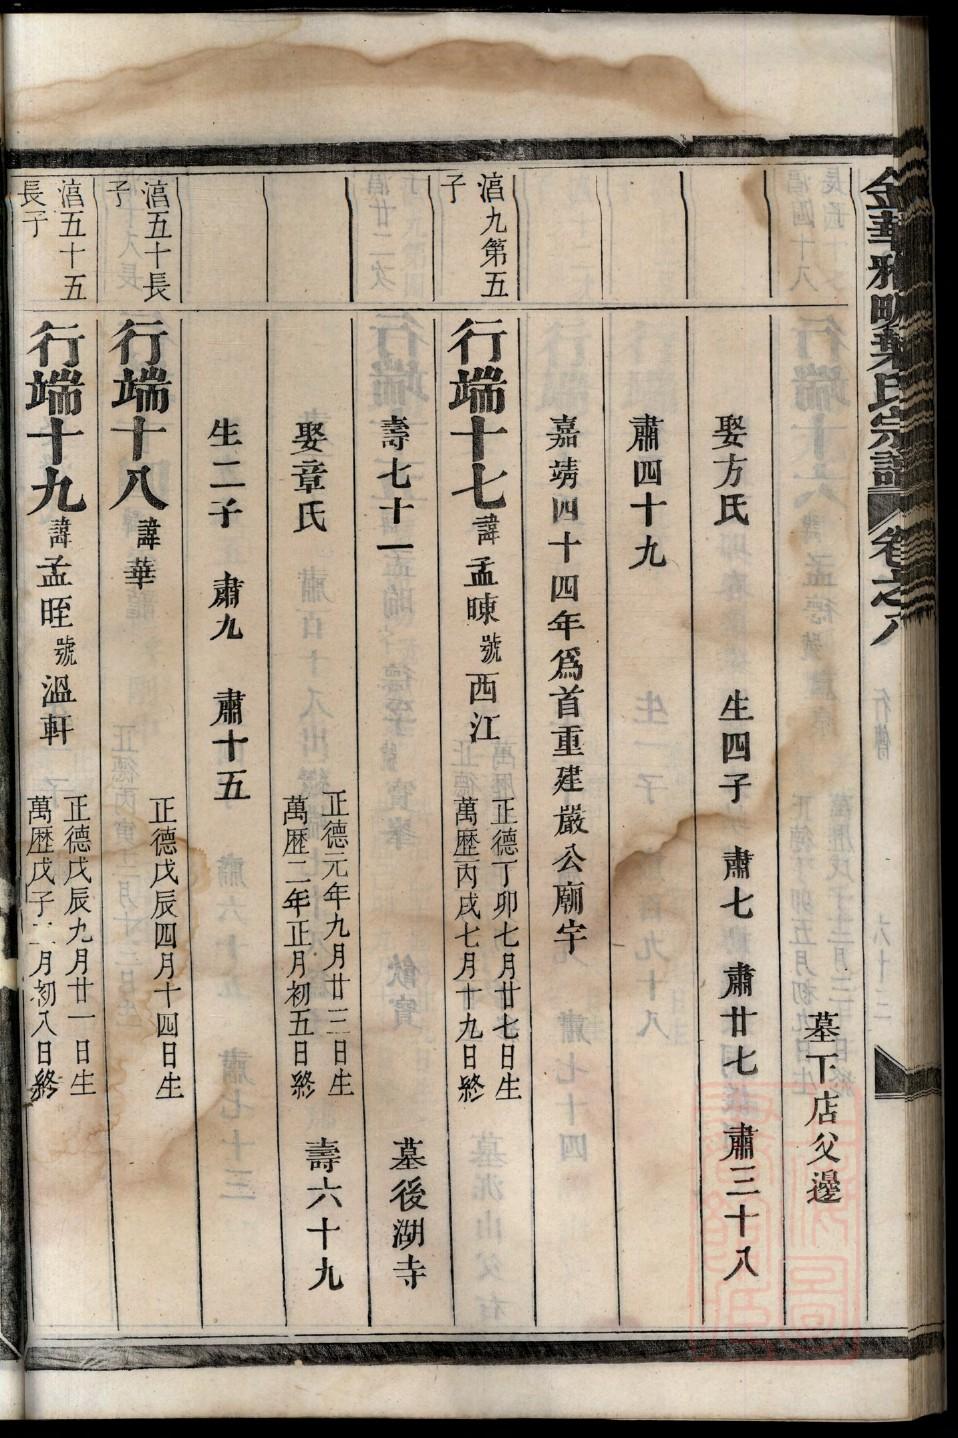 金華雅畈葉氏宗譜 卷之八
行傳 六十三
墓下店父邊
娶方氏 生四子 肅七 肅廿七 肅三十八
肅四十九
嘉靖四十四年爲首重建嚴公廟宇
湻九第五子
行端十七 諱孟暕 號西江 正德丁卯七月廿七日生 萬歷丙戌七月十九日終
壽七十一 墓後湖寺
娶章氏 正德元年九月廿三日生 萬歷二年正月初五日終 壽六十九
生二子 肅九 肅十五
湻五十長子
行端十八 諱華 正德戊辰四月十四日生
湻五十五長子
行端十九 諱孟晊 號溫軒 正德戊辰九月廿一日生 萬歷戊子二月初八日終